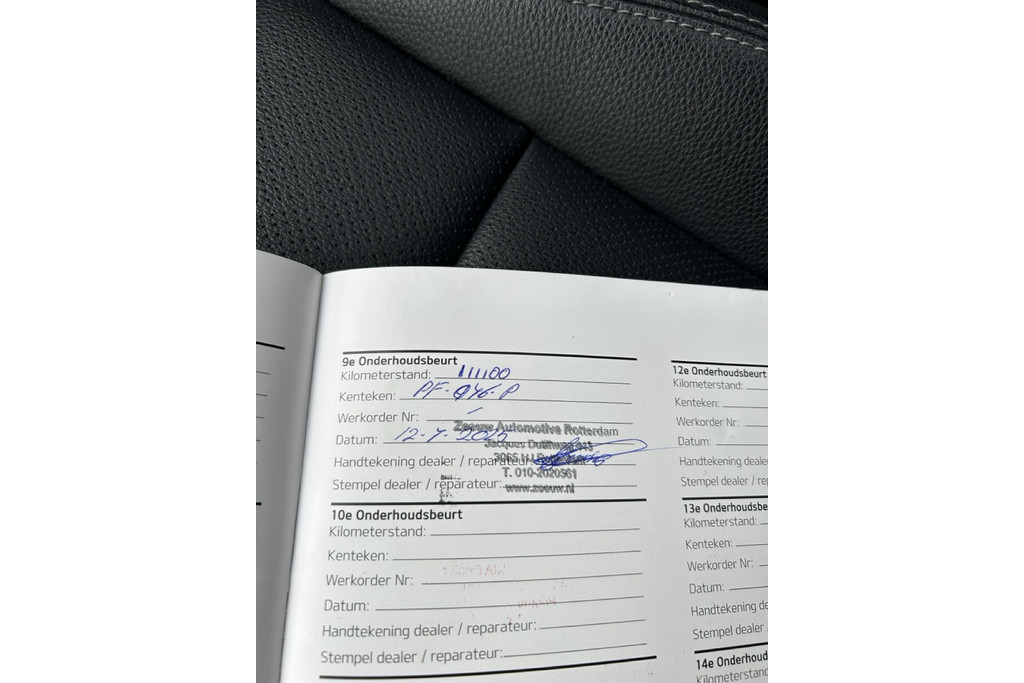 9e Onderhoudsbeurt
Kilometerstand: 111100
Kenteken: PF-946-P
Werkorder Nr: -
Datum: 12-7-2023
Zeeuw Automotive Rotterdam
Jacques Dutilhweg
Handtekening dealer / reparateur:
3065
T. 010-2020561
Stempel dealer / reparateur:
www.zeeuw.nl
10e Onderhoudsbeurt
Kilometerstand:
Kenteken:
Werkorder Nr:
Datum:
Handtekening dealer / reparateur:
Stempel dealer / reparateur:
12e Onderhoudsbeurt
Kilometerstand:
Kenteken:
Werkorder Nr:
Datum:
Handtekening dealer
Stempel dealer / re
13e Onderhoudsbe
Kilometerstand:
Kenteken:
Werkorder Nr:
Datum:
Handtekening de
Stempel dealer
14e Onderhoud
Kilometerstan